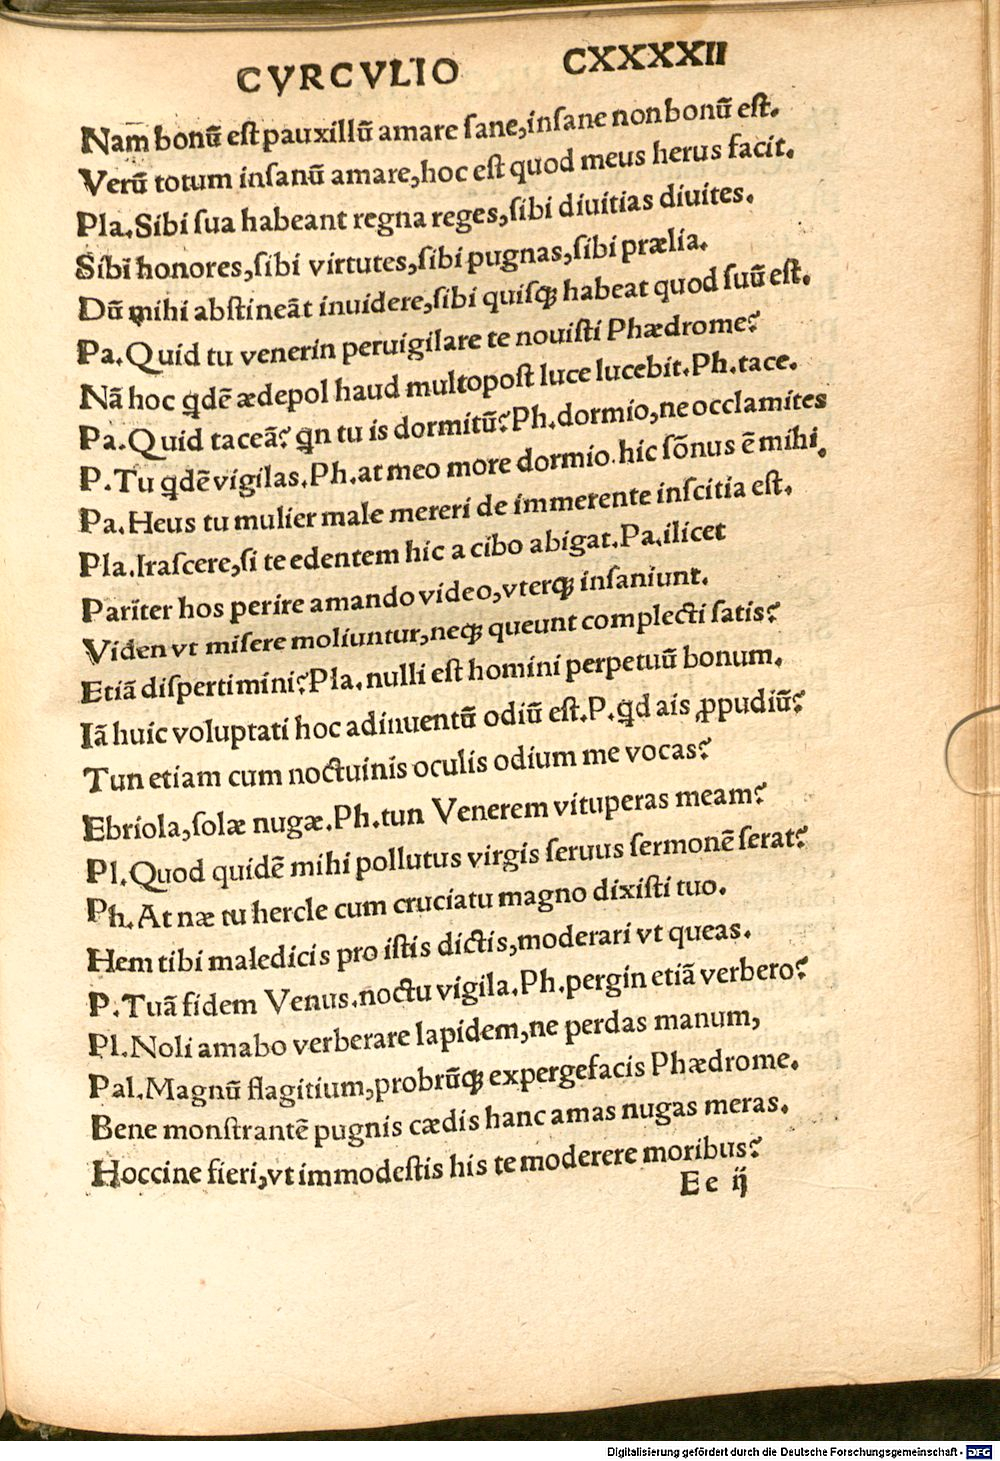 CVRCVLIO CXXXXII
Nam bonū est pauxillū amare sane,insane non bonū est.
Verū totum insanū amare,hoc est quod meus herus facit.
Pla.Sibi sua habeant regna reges,sibi diuitias diuites.
Sibi honores,sibi virtutes,sibi pugnas,sibi prælia.
Dū mihi abstineāt inuidere,sibi quisqꝫ habeat quod suū est.
Pa.Quid tu venerin peruigilare te nouisti Phædrome?
Nā hoc qdē ædepol haud multopost luce lucebit.Ph.tace.
Pa.Quid taceā? qn tu is dormitū?Ph.dormio,ne occlamites
P.Tu qdē vigilas.Ph.at meo more dormio.hic sōnus ē mihi.
Pa.Heus tu mulier male mereri de immerente inscitia est.
Pla.Irascere,si te edentem hic a cibo abigat.Pa.ilicet
Pariter hos perire amando video,vterqꝫ insaniunt.
Viden vt misere moliuntur,neqꝫ queunt complecti satis?
Etiā dispertimini?Pla.nulli est homini perpetuū bonum.
Iā huic voluptati hoc adinuentū odiū est.P.qd ais ꝓpudiū?
Tun etiam cum noctuinis oculis odium me vocas?
Ebriola,solæ nugæ.Ph.tun Venerem vituperas meam?
Pl.Quod quidē mihi pollutus virgis seruus sermonē serat?
Ph.At næ tu hercle cum cruciatu magno dixisti tuo.
Hem tibi maledicis pro istis dictis,moderari vt queas.
P.Tuā fidem Venus.noctu vigila.Ph.pergin etiā verbero?
Pl.Noli amabo verberare lapidem,ne perdas manum,
Pal.Magnū flagitium,probrūqꝫ expergefacis Phædrome.
Bene monstrantē pugnis cædis hanc amas nugas meras.
Hoccine fieri,vt immodestis his te moderere moribus?
Ee ij
Digitalisierung gefördert durch die Deutsche Forschungsgemeinschaft - DFG